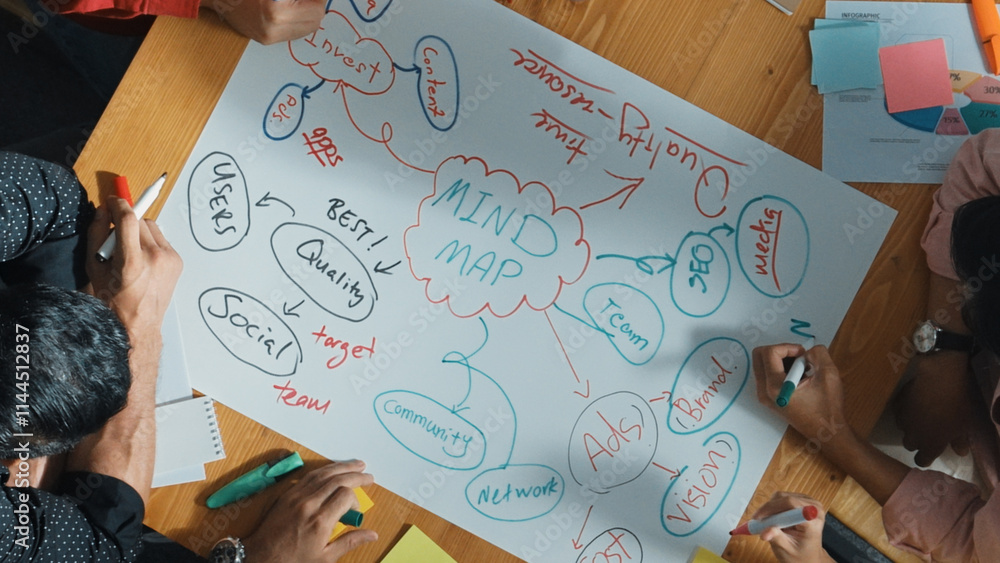 Invest
Content
Ads
apps
Quality-resource
time
MIND
MAP
USERS
BEST!
Quality
Social
target
team
SEO
media
Team
Community
Network
Ads!
(Brand.)
Vision)
Cost
N
INFOGRAPHIC
30%
27%
15%
Adobe Stock
Adobe Stock | #1144512837